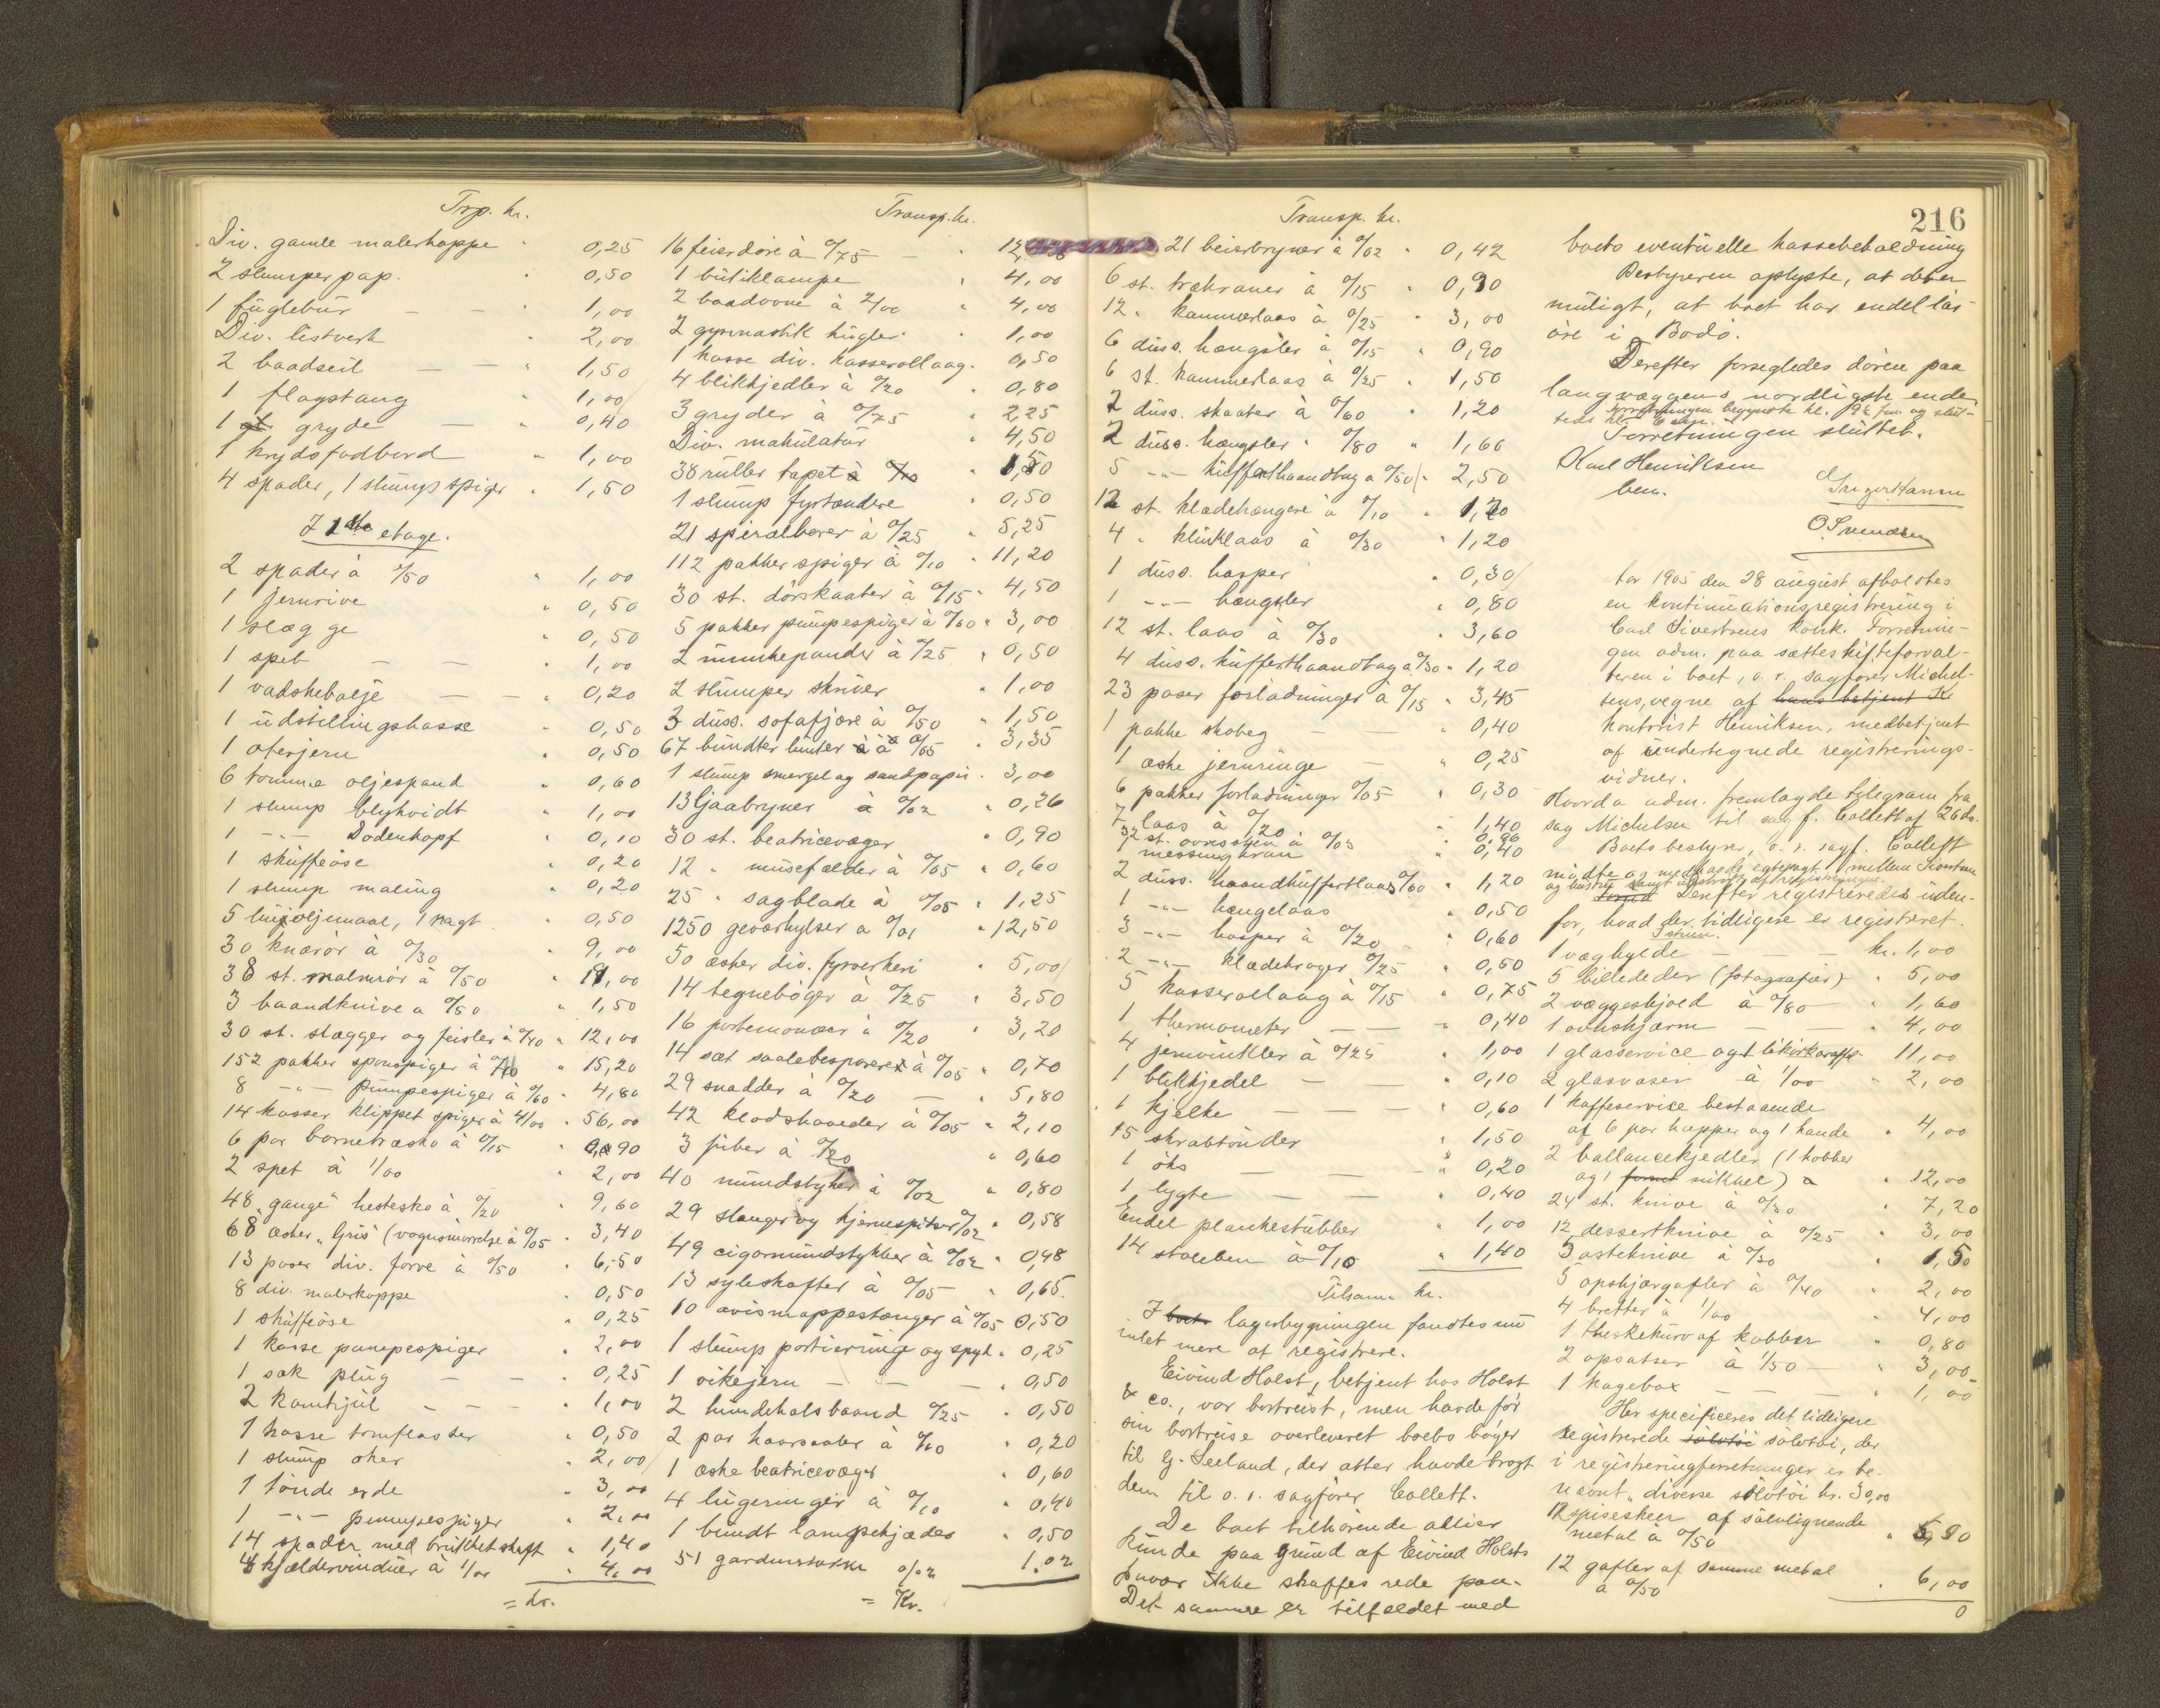 Trp. kr.
Div. gamle malerkoppe " 0,25
2 slumper pap. " 0,50
1 fuglebur — — " 1,00
Div. listverk " 2,00
2 baadseil — — " 1,50
1 flagstang " 1,00
1 gryde — " 0,40
1 krydsfodbord " 1,00
4 spader, 1 slump spiger " 1,50
I 1ste etage.
2 spader à 0/50 " 1,00
1 jernrive " 0,50
1 slægge " 0,50
1 spet — — " 1,00
1 vadskebalje — — " 0,20
1 udstillingskasse " 0,50
1 aterjern " 0,50
6 tomme oljespand " 0,60
1 slump blyhvidt " 1,00
1 -"- Dodenkopf " 0,10
1 skuffeöse " 0,20
1 slump maling " 0,20
5 linjoljemaal, 1 vagt " 0,50
30 knærör à 0/30 " 9,00
38 st. malmrör à 0/50 " 19,00
3 baandknive a 0/50 " 1,50
30 st. slægger og feisler à 0/40 " 12,00
152 pakker spiger à 0/10 " 15,20
8 -"- pumpespiger à 0/60 " 4,80
14 kasser klippet spiger à 4/00 " 56,00
6 par bornetræsko à 0/15 " 0,90
2 spet à 1/00 " 2,00
48 "gange" hestesko à 0/20 " 9,60
68 æsker "Gris" (vognsmörelse à 0/05 " 3,40
13 poser div. farve à 0/50 " 6,50
8 div. malerkoppe " 0,50
1 skuffeöse " 0,25
1 kasse pumpespiger " 2,00
1 sæk plug — — " 0,25
2 kamhjul — — — " 1,00
1 kasse tomflasker " 0,50
1 slump oker " 2,00
1 tönde erde " 3,00
1 -"- pumpespiger " 2,00
14 spader med brukket skaft " 1,40
4 kjældervinduer à 1/00 " 4,00
= kr.
Transp. kr.
16 feierdöre à 0/75 — " 12,
1 butiklampe " 4,00
2 baadovne à 2/00 " 4,00
2 gymnastik kugler " 1,00
1 kasse div. kasserollaag. " 0,50
4 blikkjedler à 0/20 " 0,80
3 gryder à 0/75 " 2,25
Div. makulatur " 4,50
38 ruller tapet " 1,50
1 slump fyrtændere " 0,50
21 spiralborer à 0/25 " 5,25
112 pakker spiger à 0/10 " 11,20
30 st. dörskaater à 0/15 " 4,50
5 pakker pumpespiger à 0/60 " 3,00
2 munkepander à 0/25 " 0,50
2 slumper skruer " 1,00
3 duss. sofafjære à 0/50 " 1,50
67 bundter lunter à 0/05 " 3,35
1 slump smergel og sandpapir " 3,00
13 ljaabryner à 0/02 " 0,26
30 st. beatricevæger " 0,90
12 " musefælder à 0/05 " 0,60
25 " sagblade à 0/05 " 1,25
1250 geværhylser a 0/01 " 12,50
50 æsker div. fyrverkeri " 5,00
14 tegneböger à 0/25 " 3,50
16 portemonæer à 0/20 " 3,20
14 sæt saalebesparere à 0/05 " 0,70
29 snadder à 0/20 — " 5,80
42 klodshoveder à 0/05 " 2,10
3 piber à 0/20 " 0,60
40 mundstyker à 0/02 " 0,80
29 slanger og kjernespitser 0/02 " 0,58
49 cigarmundstykker à 0/02 " 0,98
13 syleskafter à 0/05 " 0,65
10 avismappestænger à 0/05 0,50
1 slump portierringe og spyd " 0,25
1 vikejern — — — " 0,50
2 hundehalsbaand 0/25 " 0,50
2 par haarsaaler à 0/10 " 0,20
1 æske beatricevæger " 0,60
4 lugeringer à 0/10 " 0,40
1 bundt lampekjæder " 0,50
51 gardinstokke 0/02 1,02
= Kr.
216
Transp. kr.
21 beisebryner à 0/02 " 0,42
6 st. trækraner à 0/15 " 0,90
12 " kammerlaas à 0/25 " 3,00
6 duss. hængsler à 0/15 " 0,90
6 st. kammerlaas à 0/25 " 1,50
2 duss. skaater à 0/60 " 1,20
2 duss. hængsler " 0/80 " 1,60
5 -"- kufferthaandtag a 0/50 " 2,50
12 st. klædehængere à 0/10 " 1,20
4 " klinklaas à 0/30 " 1,20
1 duss. hasper " 0,30
1 -"- hængsler " 0,80
12 st. laas à 0/30 " 3,60
4 duss. kufferthaandtag à 0/30 " 1,20
23 poser forladninger à 0/15 " 3,45
1 pakke skobeg — — " 0,40
1 æske jernringe — " 0,25
6 pakker forladninger 0/05 " 0,30
7 laas à 0/20 " 1,40
32 st. à 0/03 " 0,96
messingkran " 0,40
2 duss. haandkuffertlaas 0/60 " 1,20
1 -"- hængelaas " 0,50
3 -"- hasper à 0/20 " 0,60
2 -"- klædekroger 0/25 " 0,50
5 kasserollaag à 0/15 " 0,75
1 thermometer — — " 0,40
4 jernvinkler à 0/25 " 1,00
1 blikkjedel — — " 0,10
1 kjelke — — — " 0,60
15 skrabtönder " 1,50
1 öks — — — " 0,20
1 lygte — — " 0,40
Endel plankestubber " 1,00
14 stoleben à 0/10 " 1,40
Tilsam. kr.
I lagerbygningen fandtes nu
intet mere at registrere.
Eivind Holst, betjent hos Holst
& co., var bortreist, men havde för
sin bortreise overleveret boets böger
til lj. Seeland, der atter havde bragt
dem til o. r. sagförer Collett.
De boet tilhörende aktier
kunde paa grund af Eivind Holsts
fravær ikke skaffes rede paa.
Det samme er tilfældet med
boets eventuelle kassebeholdning
Bestyreren oplyste, at det er
muligt, at boet har endel lös-
öre i Bodö.
Derefter forsegledes dören paa
langvæggens nordligste ende.
Forretningen begyndte kl. 9½ fm. og slut-
tedes kl.
Forretningen sluttet.
Karl Henriksen
bem.
Greger Hansen
O. Svendsen
Aar 1905 den 28 august afholdtes
en kontinuationsregistrering i
Carl Sivertsens konk. Forretnin-
gen adm. paa sætteskifteforval-
teren i boet, o. r. sagförer Michel-
sens, vegne af hans betjent K
kontorist Henriksen, medbetjent
af undertegnede registrerings-
vidner.
Hvorda adm. fremlagde telegram fra
sag Michelsen til sag f. Collett af 26 ds.
Boets bestyrer, o. r. sagf. Collett
mödte og medhavde egtepagt mellem Sivertsen
og hustru samt
Derefter registreredes uden-
for, hvad der tidligere er registreret.
I stuen.
1 væghylde — — — kr. 1,00
5 billeder (fotografier) " 5,00
2 væggeskjold à 0/80 — " 1,60
1 ovnskjærm — — " 4,00
1 glasservice og 1 likörkaraffe " 11,00
2 glasvaser à 1/00 " 2,00
1 kaffeservice bestaaende
af 6 par kopper og 1 kande " 4,00
2 ballancekjedler (1 kobber
og 1 nikkel) " 12,00
24 st. knive à 0/30 " 7,20
12 dessertknive à 0/25 " 3,00
5 osteknive à 0/30 " 1,50
5 opskjærgafler à 0/40 " 2,00
4 bretter à 1/00 " 4,00
1 theskekurv af kobber " 0,80
2 opsatser à 1/50 — " 3,00
1 kagebox — — — " 1,00
Her specificeres det tidligere
registrerede sölvtöi, der
i registreringsforretninger er be-
nævnt "diverse sölvtöi kr. 30,00
spiseskeer af sölvlignende
metal à 0/50 "
12 gafler af samme metal
à 0/50 " 6,00